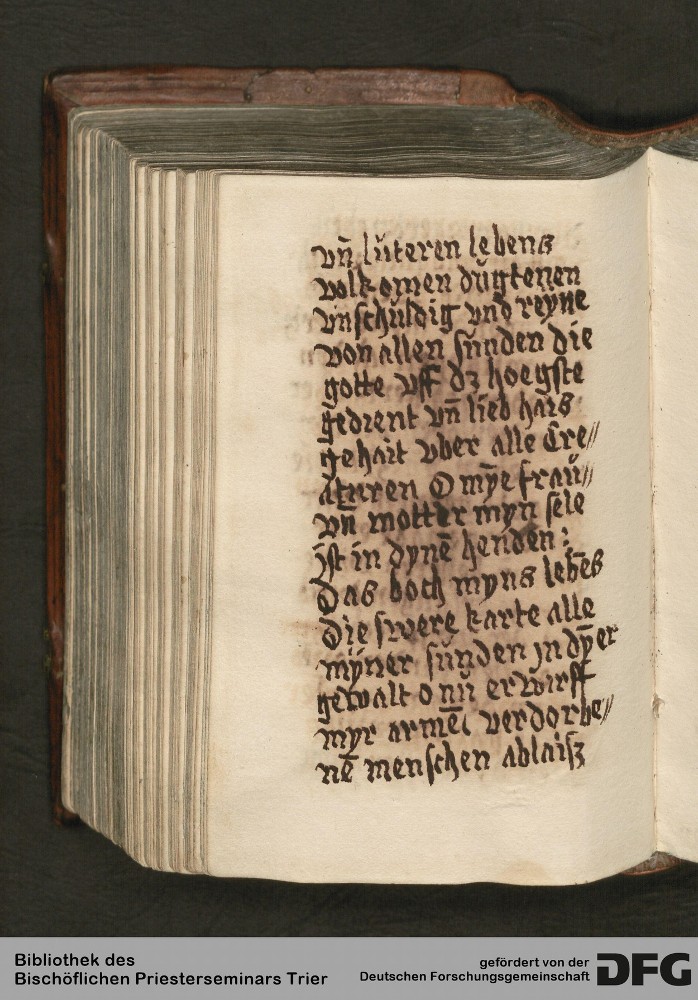 vn̄ lůteren lebens
volkomen dŭgtenen
vnschŭldig vnd reyne
von allen sŭnden die
gotte vff dz hoegste
gedient vn̄ lieb hais
gehait vber alle Cre//
aturen O mȳe fraŭ//
vn̄ motter myn sele
ist in dynē henden :
Das boch myns lebēs
Die swere karte alle
mÿner sŭnden jn dȳer
gewalt o nŭ erwirff
myr armē verdorbe//
nē menschen ablaisz
Bibliothek des
Bischöflichen Priesterseminars Trier
gefördert von der
Deutschen Forschungsgemeinschaft DFG